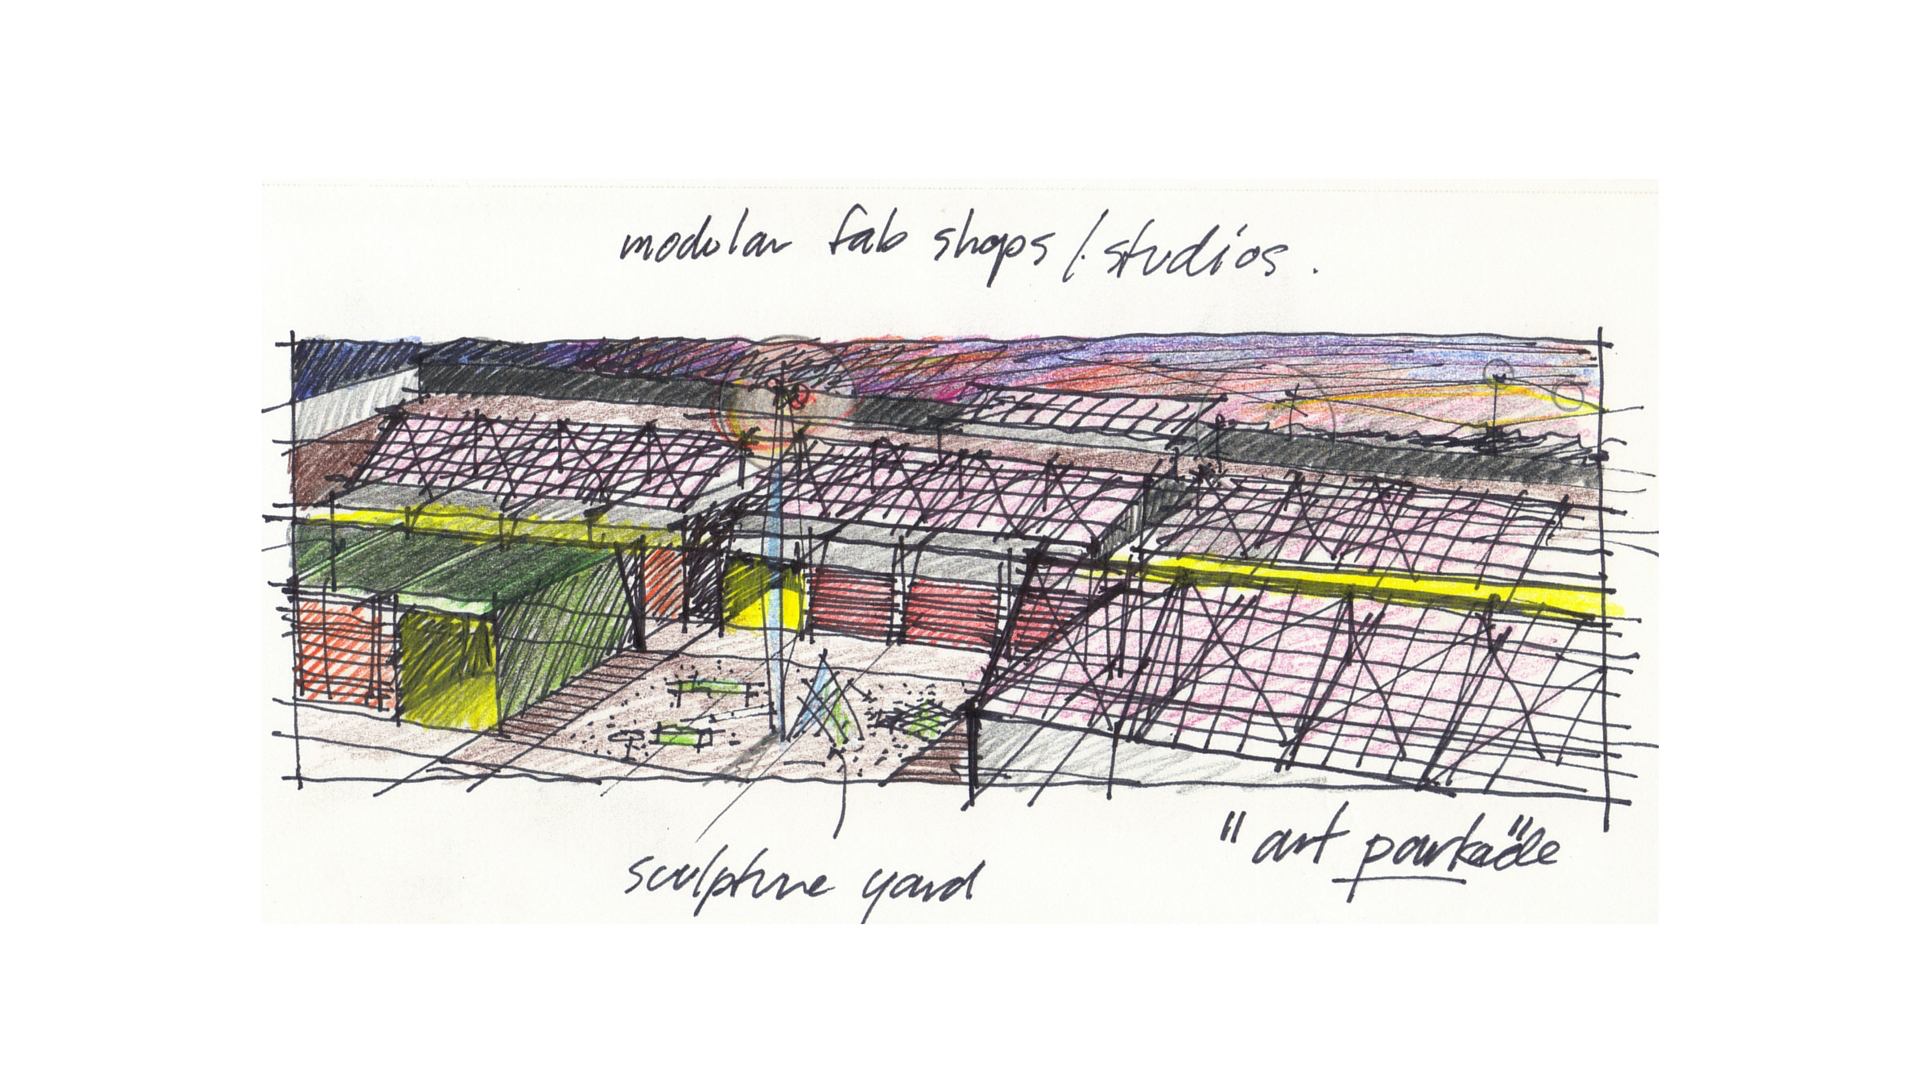 modular fab shops / studios.
sculpture yard
"art parkade"